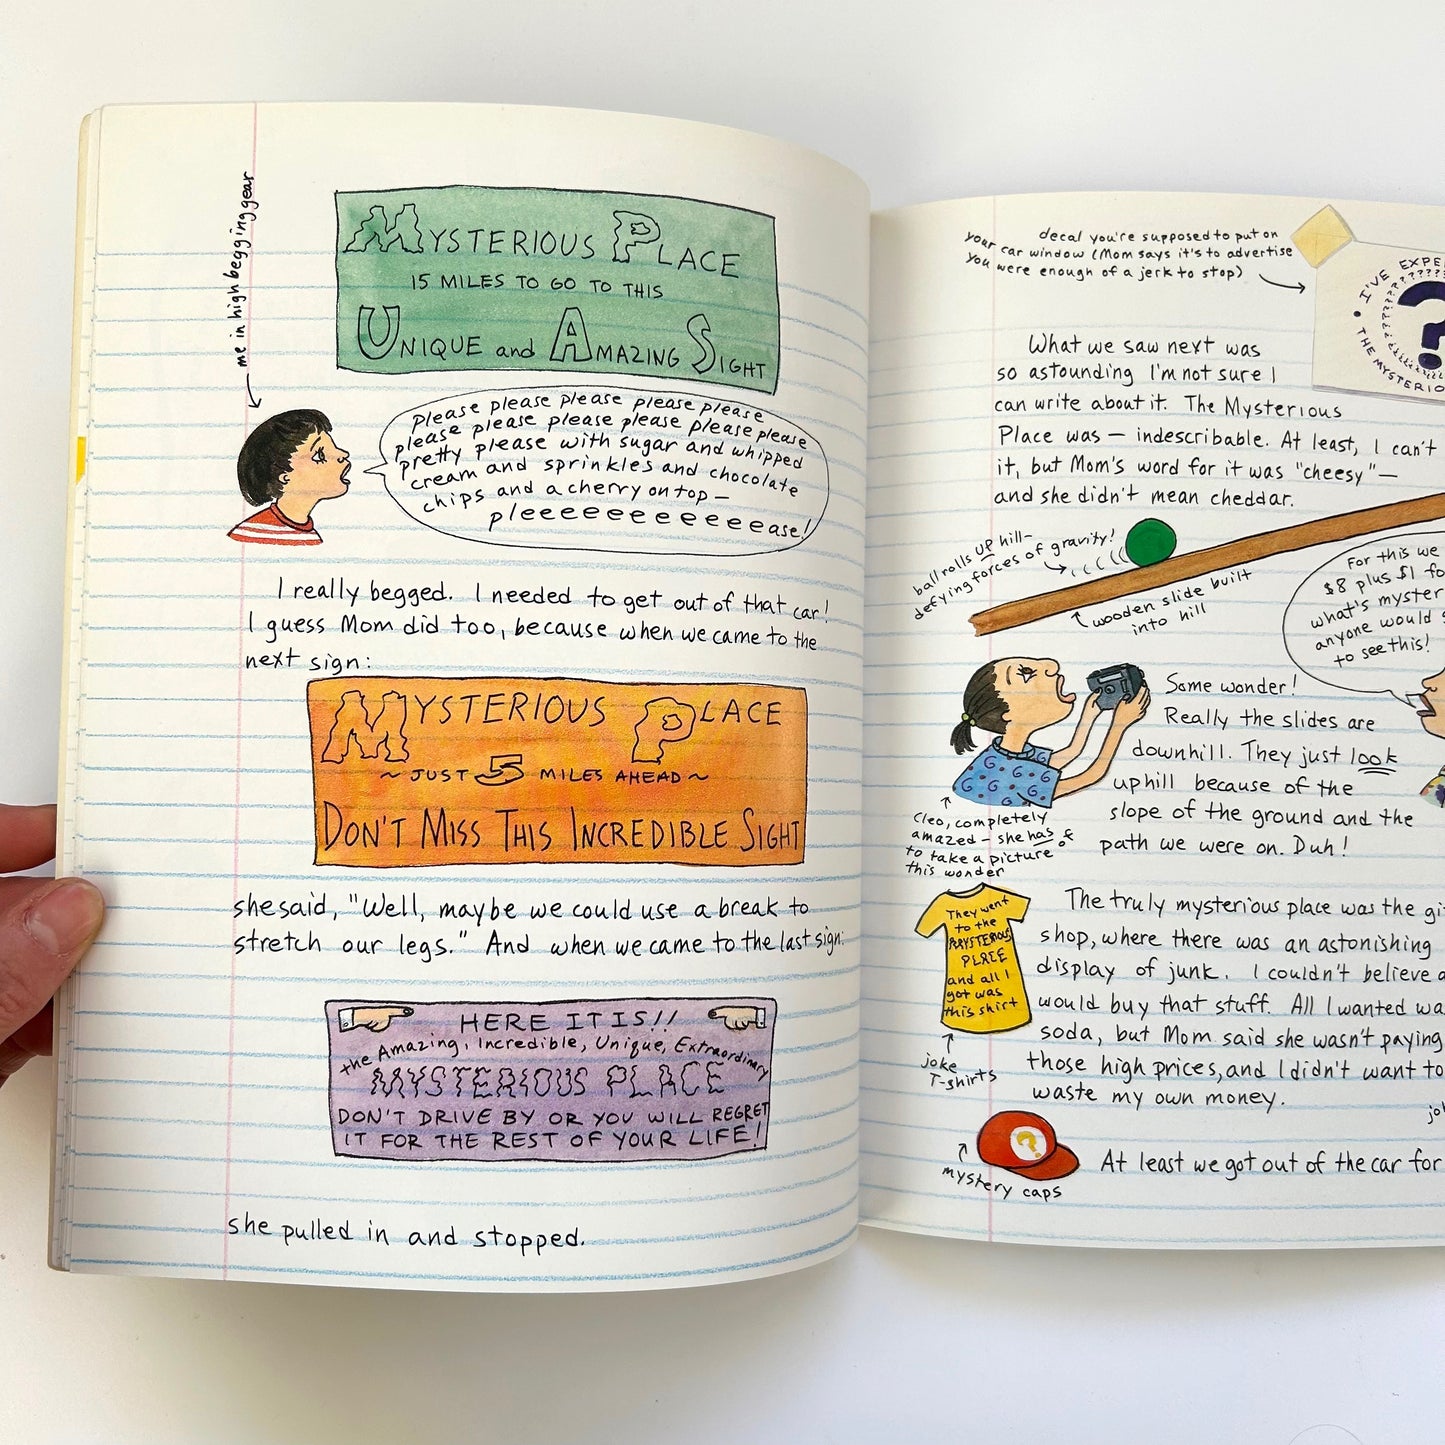 me in high begging gear
MYSTERIOUS PLACE
15 MILES TO GO TO THIS
UNIQUE and AMAZING SIGHT
please please please please please
please please please please please please
pretty please with sugar and whipped
cream and sprinkles and chocolate
chips and a cherry on top —
pleeeeeeeeeeeease!
I really begged. I needed to get out of that car!
I guess Mom did too, because when we came to the
next sign:
MYSTERIOUS PLACE
~ JUST 5 MILES AHEAD ~
DON'T MISS THIS INCREDIBLE SIGHT
she said, "Well, maybe we could use a break to
stretch our legs." And when we came to the last sign:
HERE IT IS!!
the Amazing, Incredible, Unique, Extraordinary
MYSTERIOUS PLACE
DON'T DRIVE BY OR YOU WILL REGRET
IT FOR THE REST OF YOUR LIFE!
she pulled in and stopped.
decal you're supposed to put on
your car window (Mom says it's to advertise
you were enough of a jerk to stop)
I'VE EXPE
?
THE MYSTERIO
What we saw next was
so astounding I'm not sure I
can write about it. The Mysterious
Place was — indescribable. At least, I can't
it, but Mom's word for it was "cheesy" —
and she didn't mean cheddar.
ball rolls UP hill—
defying forces of gravity!
wooden slide built
into hill
For this we
$8 plus $1 fo
what's myster
anyone would
to see this!
Some wonder!
Really the slides are
downhill. They just look
uphill because of the
slope of the ground and the
path we were on. Duh!
Cleo, completely
amazed — she has
to take a picture of
this wonder
They went
to the
MYSTERIOUS
PLACE
and all I
got was
this shirt
joke
T-shirts
The truly mysterious place was the gi
shop, where there was an astonishing
display of junk. I couldn't believe a
would buy that stuff. All I wanted wa
soda, but Mom said she wasn't paying
those high prices, and I didn't want to
waste my own money.
jo
?
mystery caps
At least we got out of the car for